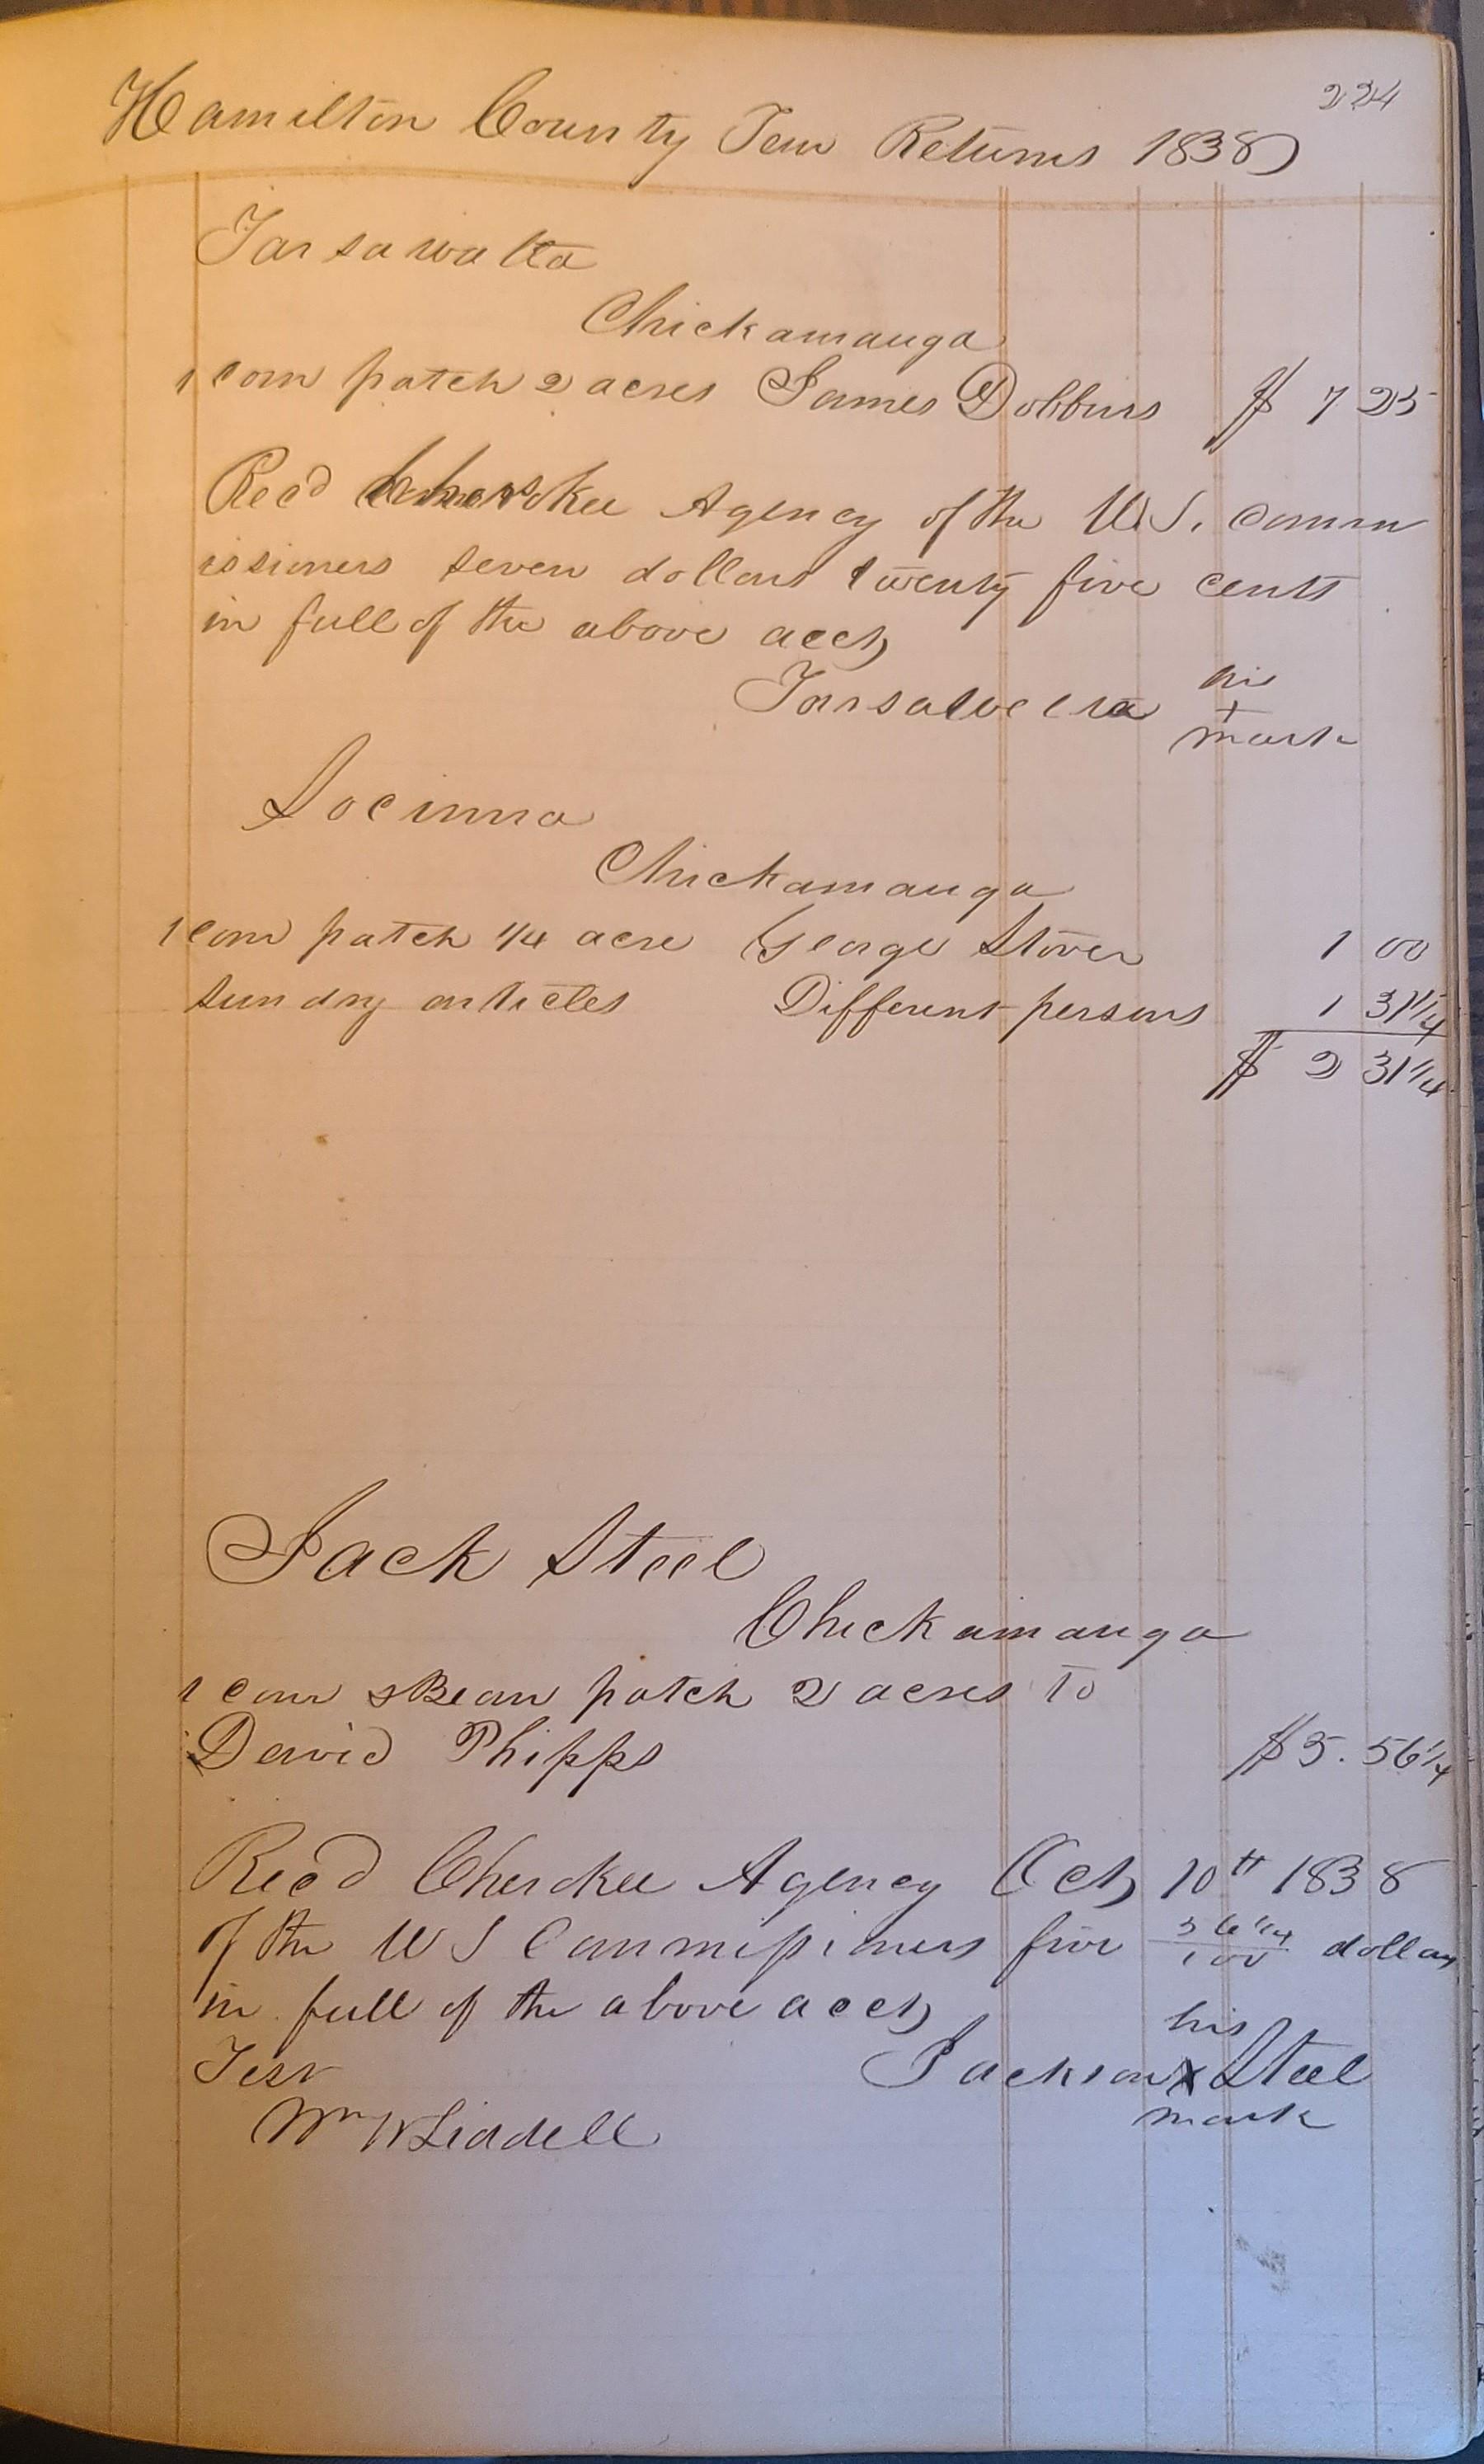 224
Hamilton County Tenn Returns 1838
Tarsawatta
Chickamauga
1 corn patch 2 acres James Dobbins $ 7 25
Recd Cherokee Agency of the U.S. comm
issioners seven dollars twenty five cents
in full of the above acct
his
+
mark
Socinna
Chickamauga
1 corn patch 1/4 acre George Stover 1 00
sundry articles Different persons 1 31 1/4
$ 2 31 1/4
Jack Steel
Chickamauga
1 corn & Bean patch 2 acres to
David Phipps $5. 56 1/4
Recd Cherokee Agency Oct 10th 1838
of the U S Commissioners five 56 1/4 / 100 dollars
in full of the above acct
his
Test Jackson X Steel
mark
Wm W Liddell